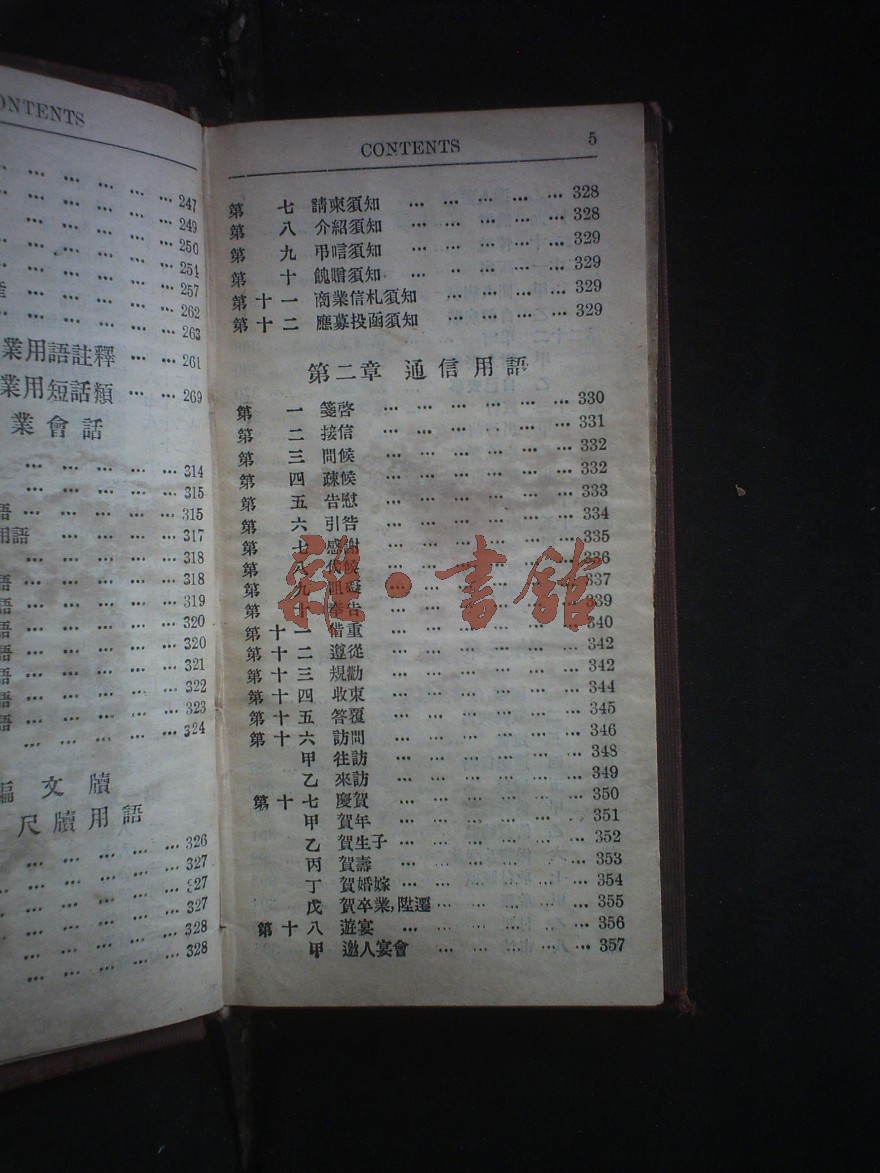 CONTENTS
… … … … … 247
… … … … … 249
… … … … … 250
… … … … … 251
… … … … … 257
… … … … … 262
… … … … … 263
業用語註釋 … … 261
業用短話類 … … 269
業會話
… … … … … 314
… … … … … 315
語 … … … … … 315
用語 … … … … 317
… … … … … 318
語 … … … … … 318
語 … … … … … 319
語 … … … … … 320
語 … … … … … 320
語 … … … … … 321
語 … … … … … 322
語 … … … … … 323
… … … … … 324
編文牘
尺牘用語
… … … … … 326
… … … … … 327
… … … … … 327
… … … … … 327
… … … … … 328
… … … … … 328
CONTENTS 5
第七 請柬須知 … … … … … 328
第八 介紹須知 … … … … … 328
第九 弔唁須知 … … … … … 329
第十 餽贈須知 … … … … … 329
第十一 商業信札須知 … … … … 329
第十二 應募投函須知 … … … … 329
第二章 通信用語
第一 箋啓 … … … … … … 330
第二 接信 … … … … … … 331
第三 問候 … … … … … … 332
第四 疎候 … … … … … … 332
第五 告慰 … … … … … … 333
第六 引咎 … … … … … … 334
第七 感謝 … … … … … … 335
第八 代候 … … … … … … 336
第九 阻礙 … … … … … … 337
第十 奉告 … … … … … … 339
第十一 借重 … … … … … … 340
第十二 遵從 … … … … … … 342
第十三 規勸 … … … … … … 342
第十四 收束 … … … … … … 344
第十五 答覆 … … … … … … 345
第十六 訪問 … … … … … … 346
甲 往訪 … … … … … … 348
乙 來訪 … … … … … … 349
第十七 慶賀 … … … … … … 350
甲 賀年 … … … … … … 351
乙 賀生子 … … … … … … 352
丙 賀壽 … … … … … … 353
丁 賀婚嫁 … … … … … … 354
戊 賀卒業,陞遷 … … … … … 355
第十八 遊宴 … … … … … … 356
甲 邀人宴會 … … … … … 357
雜·書館